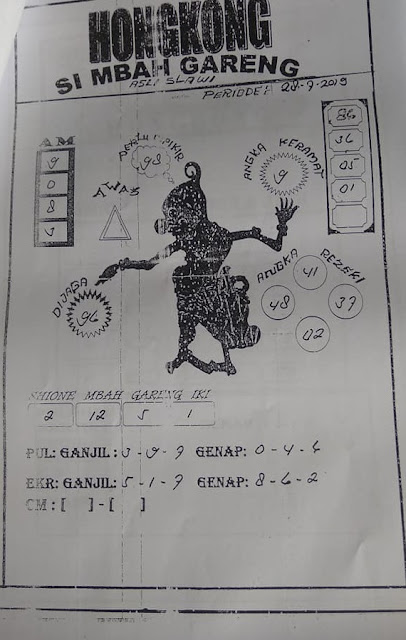 HONGKONG
SI MBAH GARENG
ASLI SLAWI
PERIODE: 28-9-2019
AM
9
0
8
PERLU DIPIKIR
98
AWAS
ANGKA KERAMAT
9
36
05
01
DIJAGA
96
ANGKA REZEKI
41
48
37
02
SHIONE MBAH GARENG IKI
2 12 5 1
PUL: GANJIL: - 9 - 7 GENAP: 0 - 4 - 6
EKR: GANJIL: 5 - 1 - 7 GENAP: 8 - 6 - 2
CM : [ ] - [ ]